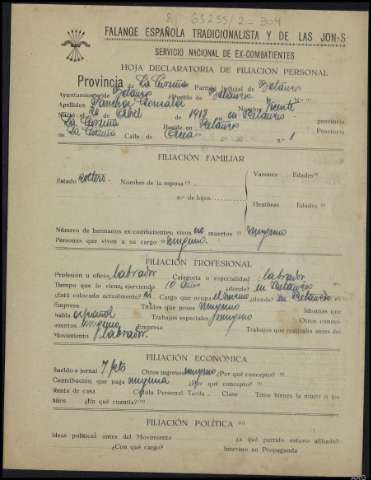 R 63255/2-304
FALANGE ESPAÑOLA TRADICIONALISTA Y DE LAS JON-S
SERVICIO NACIONAL DE EX-COMBATIENTES
HOJA DECLARATORIA DE FILIACIÓN PERSONAL
Provincia de La Coruña Partido Judicial de Betanzos
Ayuntamiento de Partido de
Apellidos Sánchez González Nombre Vicente
Nació el de Abril de 1912 en provincia
La Coruña Reside en provincia
de La Coruña Calle de n.º 1
FILIACIÓN FAMILIAR
Estado soltero Nombre de la esposa Varones Edades
n.º de hijos
Hembras Edades
Número de hermanos ex-combatientes: vivos no muertos ninguno
Personas que viven a su cargo ninguno.
FILIACIÓN PROFESIONAL
Profesión u oficio labrador Categoría o especialidad labrador
Tiempo que lo viene ejerciendo 10 años ¿donde? en
¿Está colocado actualmente? si Cargo que ocupa el mismo ¿donde? en
Empresa Títulos que posee ninguno Idiomas que
habla español Trabajos especiales ninguno Otros conoci-
mientos ninguno Empresa Trabajos que realizaba antes del
Movimiento labrador.
FILIACIÓN ECONÓMICA
Sueldo o jornal 7 pts Otros ingresos ninguno ¿Por qué concepto?
Contribución que paga ninguna ¿Por qué concepto?
Renta de casa Cédula Personal Tarifa Clase Tiene bienes la mujer o los
hijos ¿En qué cuantía?
FILIACIÓN POLÍTICA
Ideas políticas antes del Movimiento ¿a qué partido estuvo afiliado?
¿Con qué cargo? Intervino en Propaganda